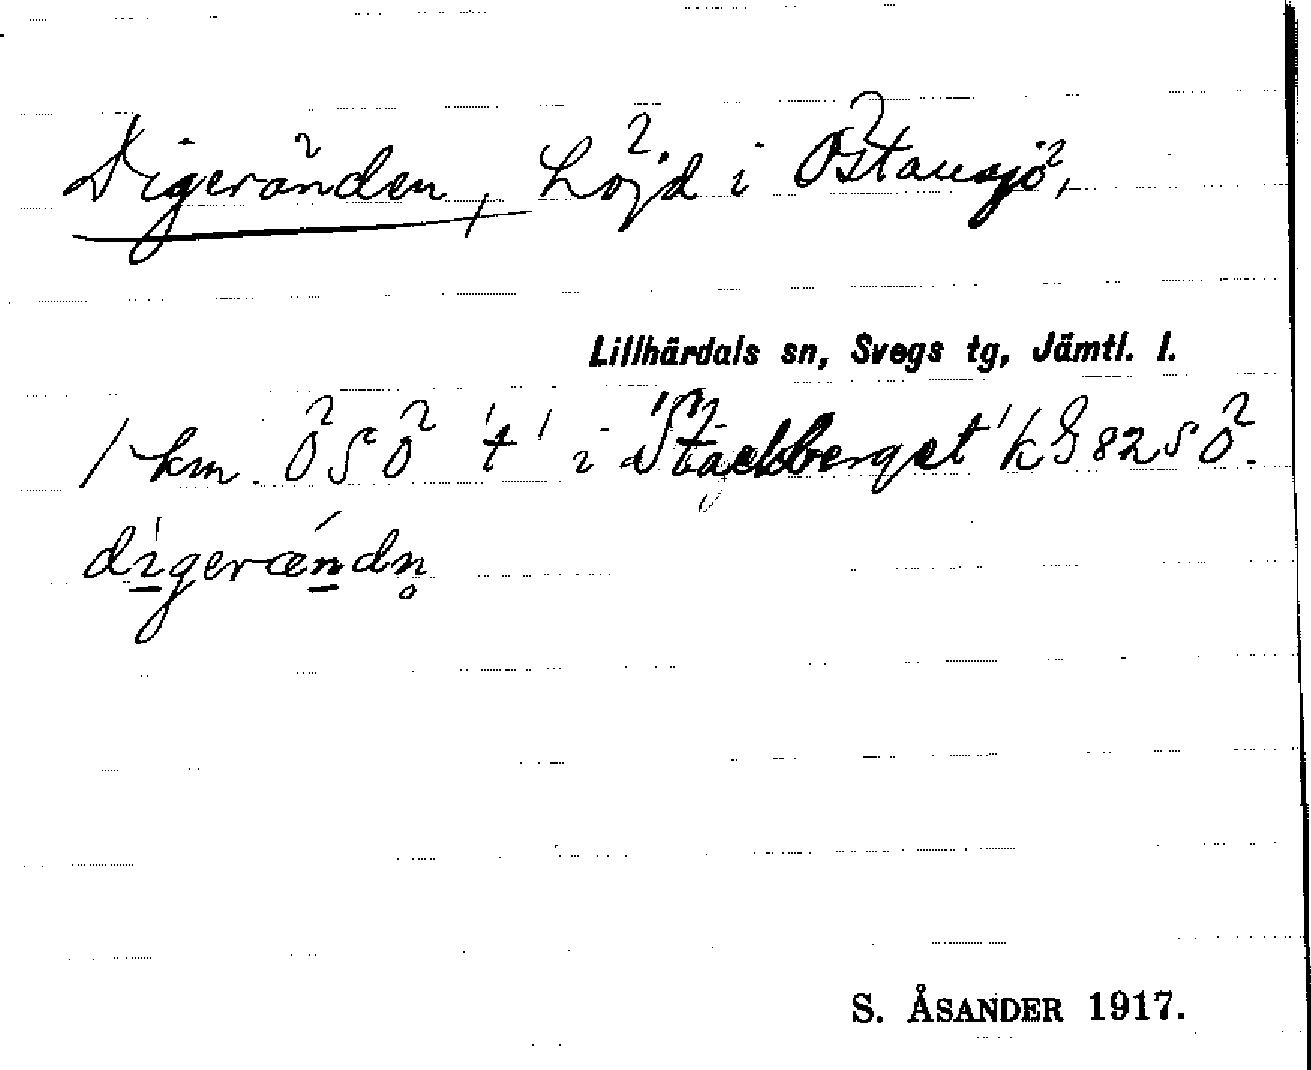 Digeränden, Höjd i Östansjö,
Lillhärdals sn, Svegs tg, Jämtl. l.
1 km ÖSÖ 't' i "Stäckberget" k G 82 S Ö.
digerændn̥
S. ÅSANDER 1917.